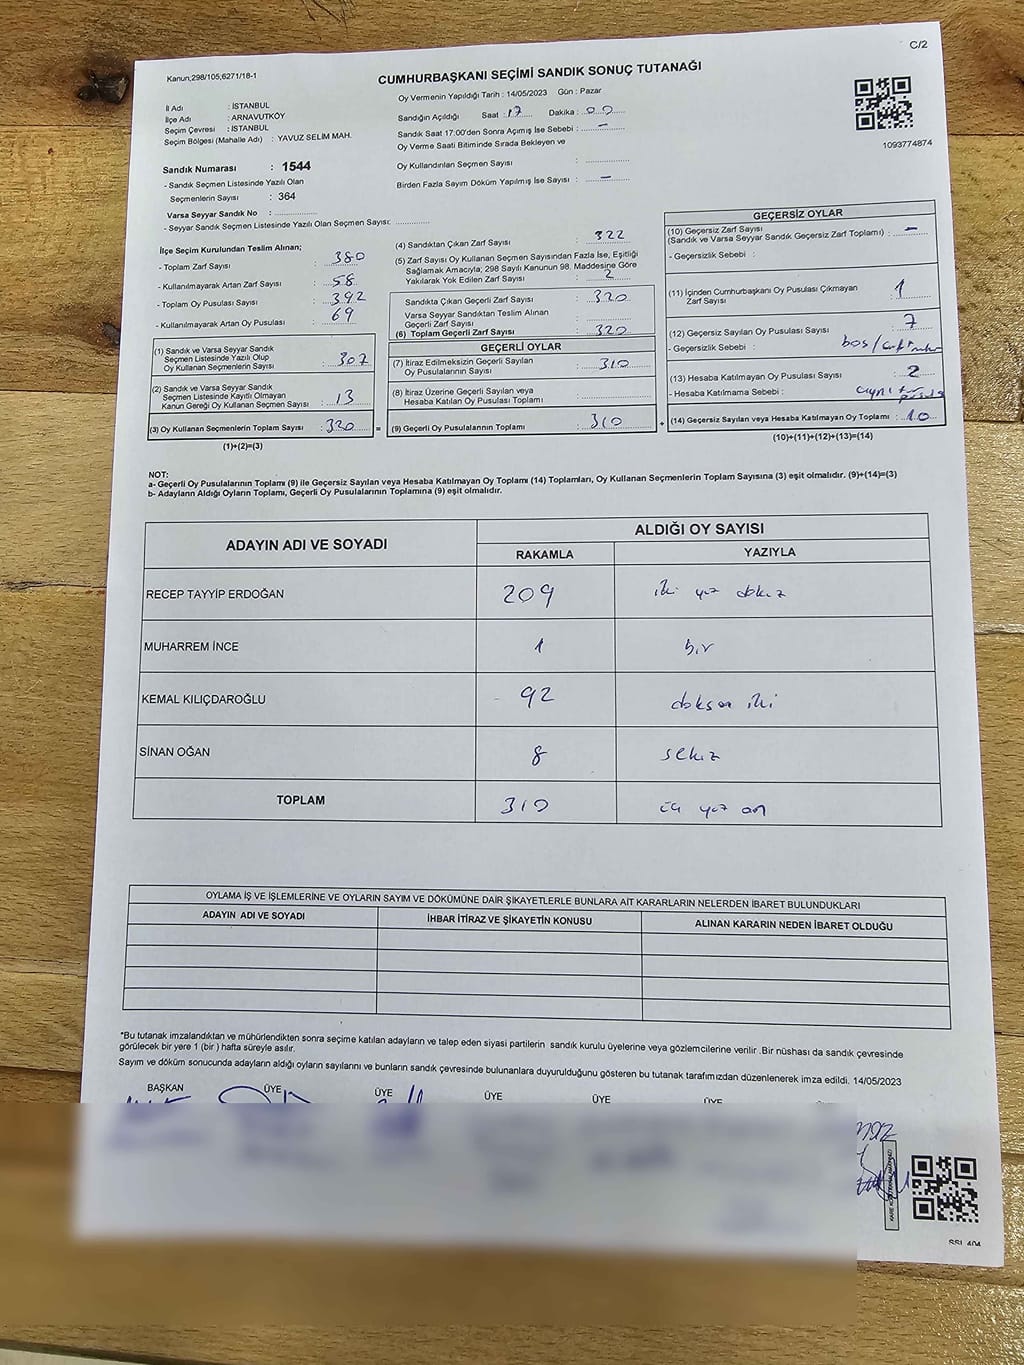 C/2
Kanun;298/105;6271/18-1
CUMHURBAŞKANI SEÇİMİ SANDIK SONUÇ TUTANAĞI
Oy Vermenin Yapıldığı Tarih : 14/05/2023 Gün : Pazar
İl Adı : İSTANBUL
İlçe Adı : ARNAVUTKÖY
Seçim Çevresi : İSTANBUL
Seçim Bölgesi (Mahalle Adı) : YAVUZ SELİM MAH.
Sandığın Açıldığı Saat : 17 Dakika : 00
Sandık Saat 17:00'den Sonra Açılmış İse Sebebi : –
Oy Verme Saati Bitiminde Sırada Bekleyen ve
Oy Kullandırılan Seçmen Sayısı :
Birden Fazla Sayım Döküm Yapılmış İse Sayısı : –
1093774874
Sandık Numarası : 1544
- Sandık Seçmen Listesinde Yazılı Olan
Seçmenlerin Sayısı : 364
Varsa Seyyar Sandık No :
- Seyyar Sandık Seçmen Listesinde Yazılı Olan Seçmen Sayısı:
İlçe Seçim Kurulundan Teslim Alınan;
- Toplam Zarf Sayısı : 380
- Kullanılmayarak Artan Zarf Sayısı : 58
- Toplam Oy Pusulası Sayısı : 392
- Kullanılmayarak Artan Oy Pusulası : 69
(1) Sandık ve Varsa Seyyar Sandık
Seçmen Listesinde Yazılı Olup
Oy Kullanan Seçmenlerin Sayısı : 307
(2) Sandık ve Varsa Seyyar Sandık
Seçmen Listesinde Kayıtlı Olmayan
Kanun Gereği Oy Kullanan Seçmen Sayısı : 13
(3) Oy Kullanan Seçmenlerin Toplam Sayısı : 320
(1)+(2)=(3)
(4) Sandıktan Çıkan Zarf Sayısı : 322
(5) Zarf Sayısı Oy Kullanan Seçmen Sayısından Fazla İse, Eşitliği
Sağlamak Amacıyla; 298 Sayılı Kanunun 98. Maddesine Göre
Yakılarak Yok Edilen Zarf Sayısı : 2
Sandıkta Çıkan Geçerli Zarf Sayısı : 320
Varsa Seyyar Sandıktan Teslim Alınan
Geçerli Zarf Sayısı :
(6) Toplam Geçerli Zarf Sayısı : 320
GEÇERLİ OYLAR
(7) İtiraz Edilmeksizin Geçerli Sayılan
Oy Pusulalarının Sayısı : 310
(8) İtiraz Üzerine Geçerli Sayılan veya
Hesaba Katılan Oy Pusulası Toplamı :
= (9) Geçerli Oy Pusulalarının Toplamı : 310
GEÇERSİZ OYLAR
(10) Geçersiz Zarf Sayısı
(Sandık ve Varsa Seyyar Sandık Geçersiz Zarf Toplamı) : –
- Geçersizlik Sebebi :
(11) İçinden Cumhurbaşkanı Oy Pusulası Çıkmayan
Zarf Sayısı : 1
(12) Geçersiz Sayılan Oy Pusulası Sayısı : 7
- Geçersizlik Sebebi : boş/
(13) Hesaba Katılmayan Oy Pusulası Sayısı : 2
- Hesaba Katılmama Sebebi :
+ (14) Geçersiz Sayılan veya Hesaba Katılmayan Oy Toplamı : 10
(10)+(11)+(12)+(13)=(14)
NOT:
a- Geçerli Oy Pusulalarının Toplamı (9) ile Geçersiz Sayılan veya Hesaba Katılmayan Oy Toplamı (14) Toplamları, Oy Kullanan Seçmenlerin Toplam Sayısına (3) eşit olmalıdır. (9)+(14)=(3)
b- Adayların Aldığı Oyların Toplamı, Geçerli Oy Pusulalarının Toplamına (9) eşit olmalıdır.
ADAYIN ADI VE SOYADI ALDIĞI OY SAYISI
RAKAMLA YAZIYLA
RECEP TAYYİP ERDOĞAN 209 iki yüz dokuz
MUHARREM İNCE 1 bir
KEMAL KILIÇDAROĞLU 92 doksan iki
SİNAN OĞAN 8 sekiz
TOPLAM 310 üç yüz on
OYLAMA İŞ VE İŞLEMLERİNE VE OYLARIN SAYIM VE DÖKÜMÜNE DAİR ŞİKAYETLERLE BUNLARA AİT KARARLARIN NELERDEN İBARET BULUNDUKLARI
ADAYIN ADI VE SOYADI İHBAR İTİRAZ VE ŞİKAYETİN KONUSU ALINAN KARARIN NEDEN İBARET OLDUĞU
*Bu tutanak imzalandıktan ve mühürlendikten sonra seçime katılan adayların ve talep eden siyasi partilerin sandık kurulu üyelerine veya gözlemcilerine verilir .Bir nüshası da sandık çevresinde
görülecek bir yere 1 (bir ) hafta süreyle asılır.
Sayım ve döküm sonucunda adayların aldığı oyların sayılarını ve bunların sandık çevresinde bulunanlara duyurulduğunu gösteren bu tutanak tarafımızdan düzenlenerek imza edildi. 14/05/2023
BAŞKAN ÜYE ÜYE ÜYE ÜYE ÜYE